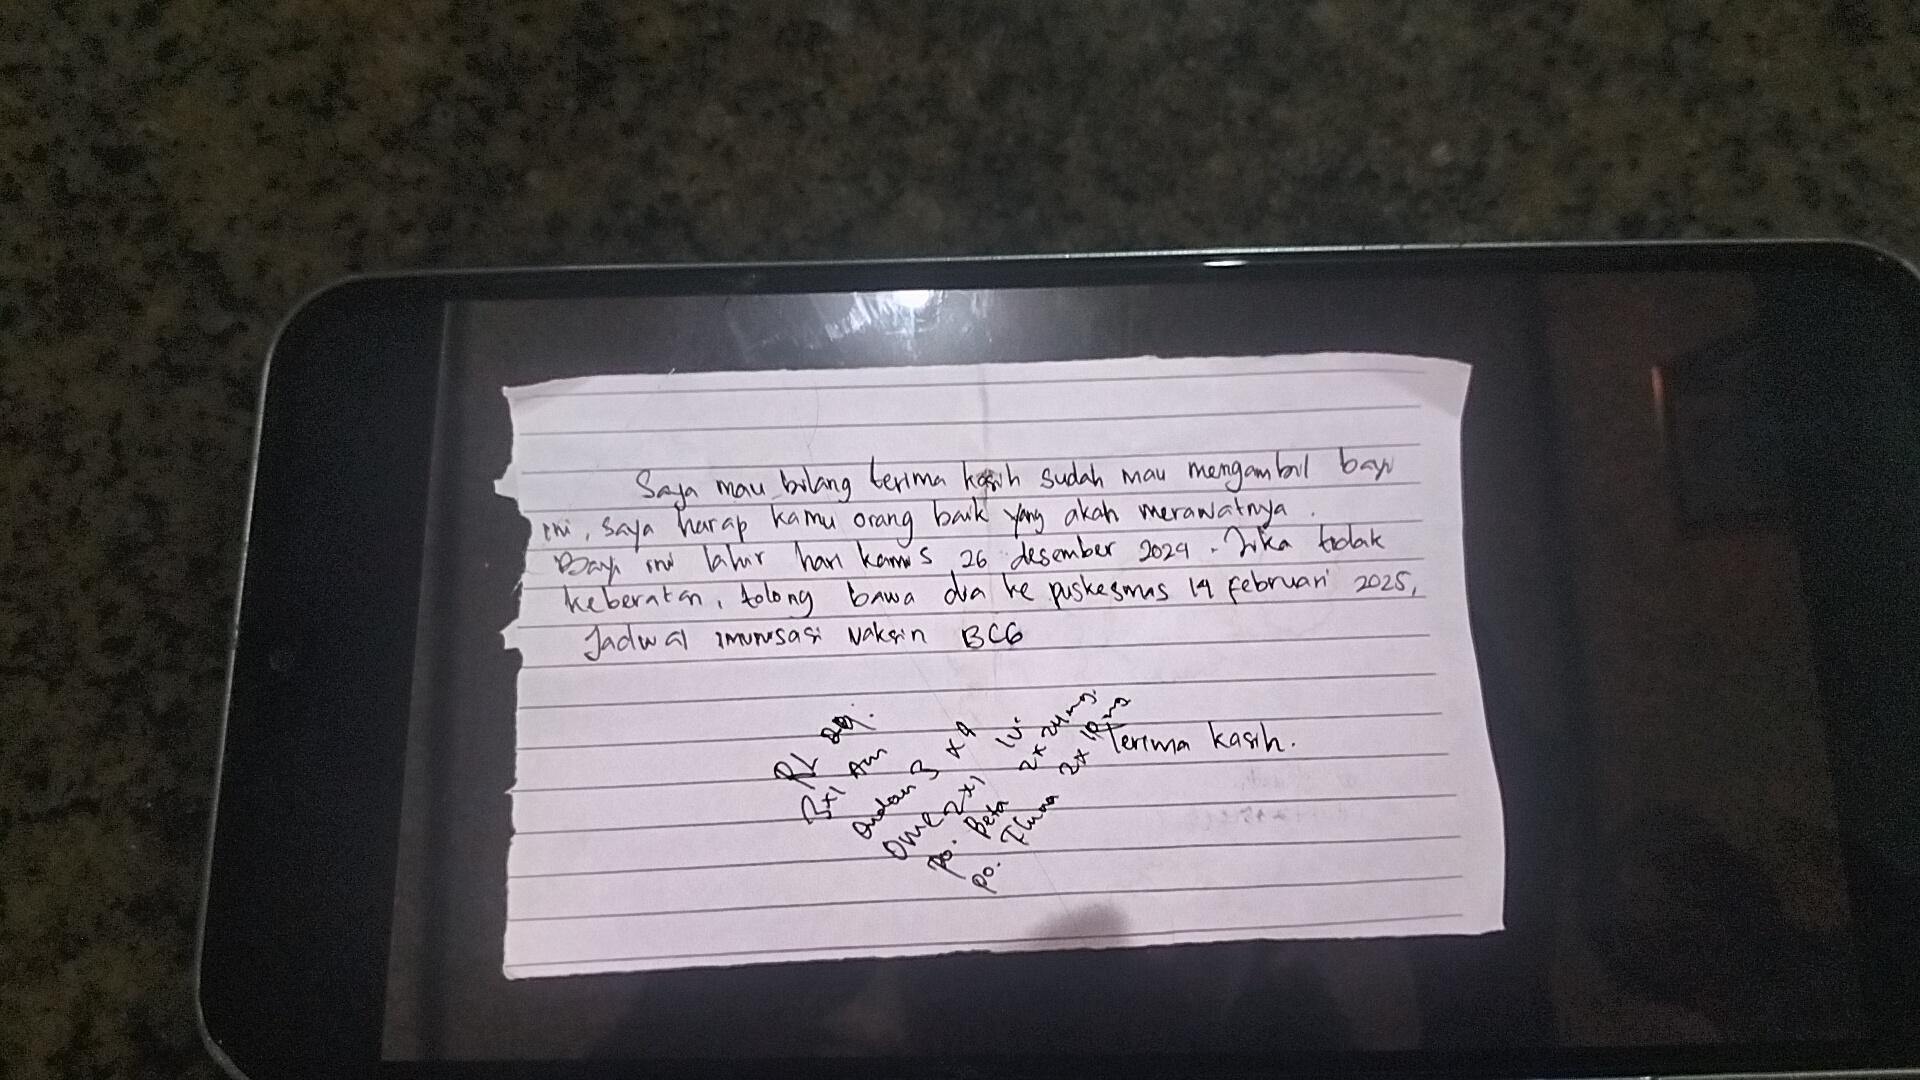 Saya mau bilang terima kasih sudah mau mengambil bayi
ini, saya harap kamu orang baik yang akan merawatnya.
Bayi ini lahir hari kamis 26 desember 2024. Jika tidak
keberatan, tolong bawa dia ke puskesmas 14 februari 2025,
Jadwal imunisasi vaksin BCG
Terima kasih.
RL
3x1
3 x 4
Ome 2x1 iv
po. Beta 2x24mg
po. 2x10mg